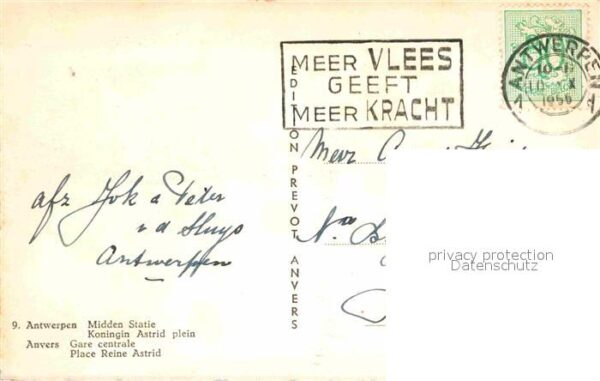 MEER VLEES
GEEFT
MEER KRACHT
ANTWERPEN
1 1
1956
EDITION PREVOT, ANVERS
Mevr
afz Jok a Peter
v d Sluys
Antwerpen
privacy protection
Datenschutz
9. Antwerpen Midden Statie
Koningin Astrid plein
Anvers Gare centrale
Place Reine Astrid